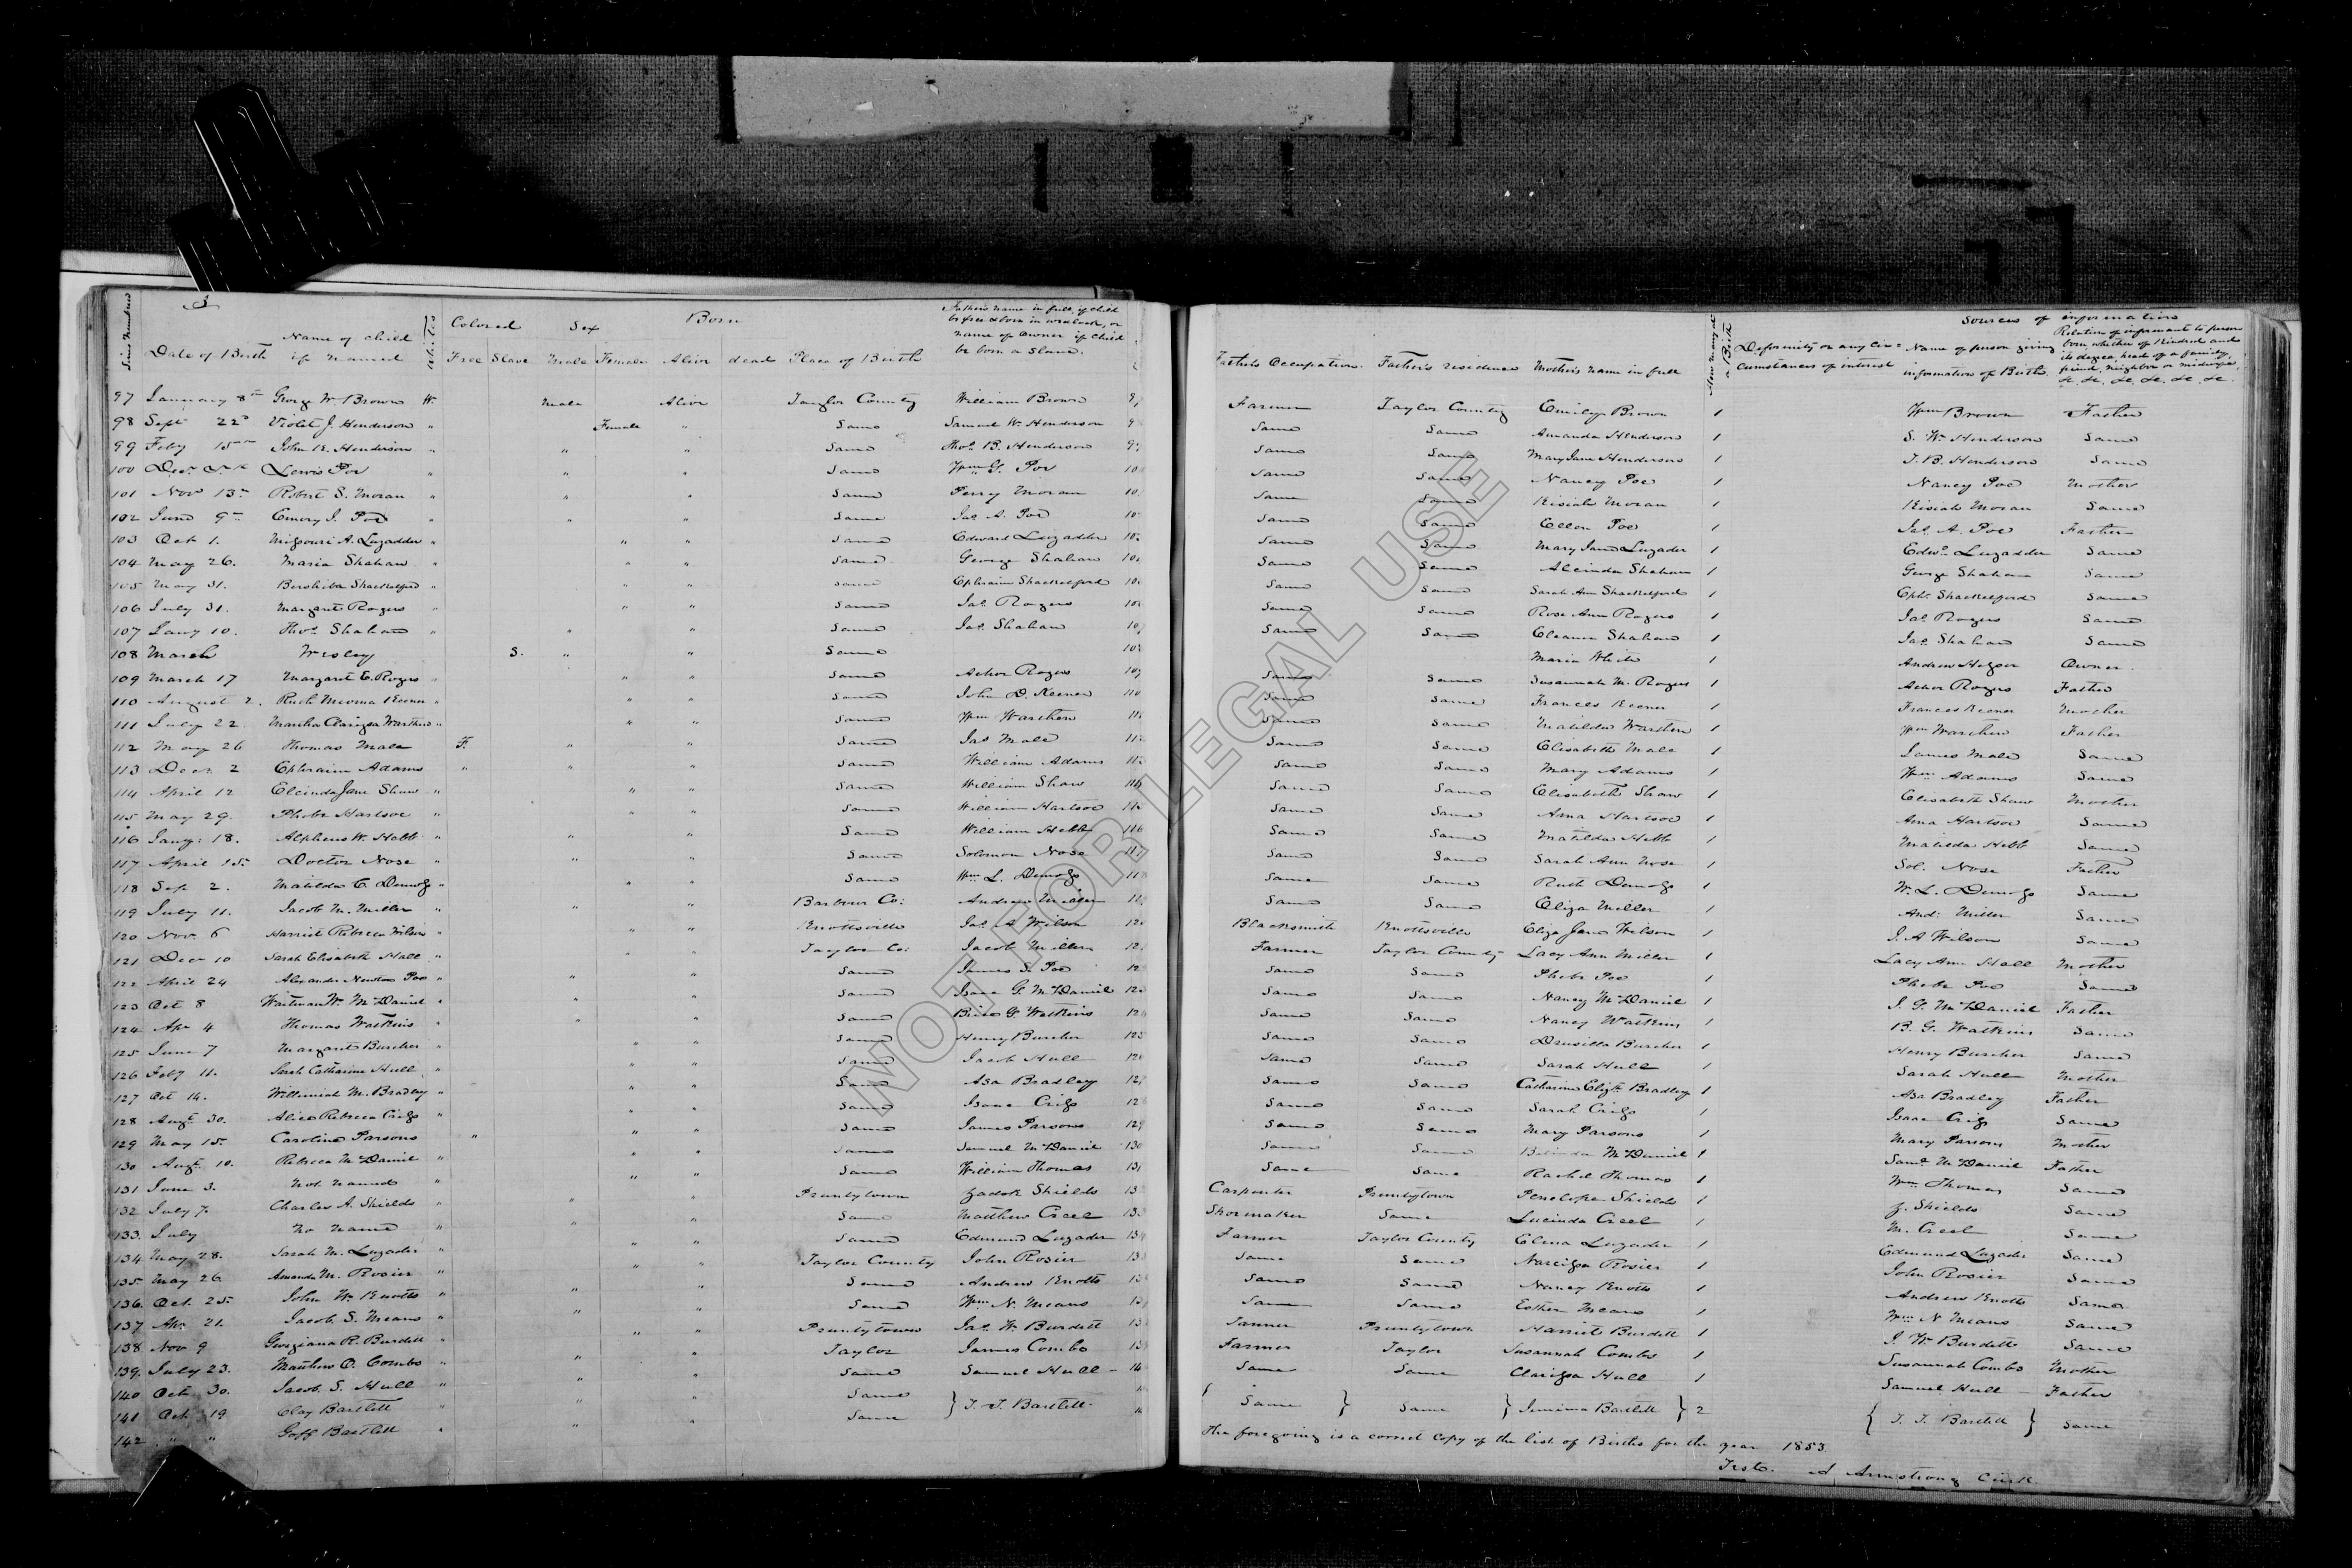 Line Number
Date of Birth
Name of child if named
Whites
Colored
Free Slave
Sex
Male Female
Born
Alive dead
Place of Birth
Father's name in full, if child
be free & born in wedlock, or
name of owner if child
be born a slave.
97 January 8th George W. Brown W. male Alive Taylor County William Brown
98 Sept 22d Violet J. Henderson " Female " Same Samuel W. Henderson
99 Feby 15th John E. Henderson " " " Same Thos. B. Henderson
100 Decr Lewis Poe " " " Same Wm G. Poe
101 Nov 13th Robert S. Moran " " " Same Perry Moran
102 June 9th Emory J. Poe " " " Same Jas. A. Poe
103 Oct 1. Missouri A. Luzadder " " " Same Edward Luzadder
104 May 26. Maria Shahan " " " Same George Shahan
105 May 31. Bershiba Shackelford " " " Same Ephraim Shackelford
106 July 31. Margaret Rogers " " " Same Jas. Rogers
107 Jany 10. Thos. Shahan " " " Same Jas. Shahan
108 March Wesley S. " " Same
109 March 17 Margaret E. Rogers " " " Same Achor Rogers
110 August 2. Ruth Keener " " " Same John D. Keener
111 July 22 Martha Clarissa Warthen " " " Same Wm Warthen
112 May 26 Thomas Male F. " " Same Jas Male
113 Decr 2 Ephraim Adams " " " Same William Adams
114 April 12 Elcinda Jane Shaw " " " Same William Shaw
115 May 29. Phebe Hartsoe " " " Same William Hartsoe
116 Jany: 18. Alpheus W. Hebb " " " Same William Hebb
117 April 15. Doctor Nose " " " Same Solomon Nose
118 Sep 2. Matilda C. Demoss " " " Same Wm L. Demoss
119 July 11. Jacob M. Miller " " " Barbour Co: Andrew Miller
120 Nov. 6 Harriet Rebecca Wilson " " " Knottsville Jas. A. Wilson
121 Decr 10 Sarah Elisabeth Hall " " " Taylor Co: Jacob Miller
122 April 24 Alexander Newton Poe " " " Same James S. Poe
123 Oct 8 Waitman W. McDaniel " " " Same Isaac G. McDaniel
124 Apr 4 Thomas Watkins " " " Same G. Watkins
125 June 7 Margaret Burcher " " " Same Henry Burcher
126 Feby 11. Sarah Catharine Hull " " " Same Jacob Hull
127 Oct 14. M. Bradley " " " Same Asa Bradley
128 Augt 30. Alice Rebecca Criss " " " Same Isaac Criss
129 May 15. Caroline Parsons " " " Same James Parsons
130 Augt 10. Rebecca McDaniel " " " Same Samuel McDaniel
131 June 3. Not named " " " Same William Thomas
132 July 7. Charles A. Shields " " " Pruntytown Zadok Shields
133. July No name " " " Same Matthew Creel
134 May 28. Sarah M. Luzader " " " Same Edmund Luzader
135 May 26 Amanda M. Rosier " " " Taylor County John Rosier
136. Oct. 25. John W. Knotts " " " Same Andrew Knotts
137 Apr. 21. Jacob S. Means " " " Same Wm N. Means
138 Nov 9 Georgiana R. Burdett " " " Pruntytown Jas. W. Burdett
139. July 23. Matthew O. Combs " " " Taylor James Combs
140 Oct. 30. Jacob S. Hull " " " Same Samuel Hull
141 Oct 19 Clay Bartlett " " " Same } T. J. Bartlett
142 " " Goff Bartlett " " " Same
Father's Occupation. Father's residence Mother's name in full
How many at a Birth
Deformity or any circumstances of interest
Sources of information
Name of person giving information of Birth.
Relation of informant to person
born, whether of Kindred and
its degree, head of a family,
friend, neighbor or midwife,
&c &c, &c. &c. &c. &c.
Farmer Taylor County Emily Brown 1 Wm Brown Father
Same Same Amanda Henderson 1 S. W. Henderson Same
Same Same Mary Jane Henderson 1 T. B. Henderson Same
Same Same Nancy Poe 1 Nancy Poe Mother
Same Same Kisiah Moran 1 Kisiah Moran Same
Same Same Ellen Poe 1 Jas. A. Poe Father
Same Same Mary Jane Luzader 1 Edwd. Luzadder Same
Same Same Alcinda Shahan 1 George Shahan Same
Same Same Sarah Ann Shackelford 1 Eph. Shackelford Same
Same Same Rose Ann Rogers 1 Jas. Rogers Same
Same Same Eleanor Shahan 1 Jas. Shahan Same
Maria White 1 Andrew Owner.
Same Same Susannah M. Rogers 1 Achor Rogers Father
Same Same Frances Keener 1 Frances Keener Mother
Same Same Matilda Warthen 1 Wm Warthen Father
Same Same Elisabeth Male 1 James Male Same
Same Same Mary Adams 1 Wm Adams Same
Same Same Elisabeth Shaw 1 Elisabeth Shaw Mother
Same Same Anna Hartsoe 1 Anna Hartsoe Same
Same Same Matilda Hebb 1 Matilda Hebb Same
Same Same Sarah Ann Nose 1 Sol. Nose Father
Same Same Ruth Demoss 1 W. L. Demoss Same
Same Same Eliza Miller 1 And: Miller Same
Blacksmith Knottsville Eliza Jane Wilson 1 J. A. Wilson Same
Farmer Taylor County Lacy Ann Miller 1 Lacy Ann Hall Mother
Same Same Phebe Poe 1 Phebe Poe Same
Same Same Nancy McDaniel 1 I. G. McDaniel Father
Same Same Nancy Watkins 1 B. G. Watkins Same
Same Same Drusilla Burcher 1 Henry Burcher Same
Same Same Sarah Hull 1 Sarah Hull Mother
Same Same Catharine Elizth. Bradley 1 Asa Bradley Father
Same Same Sarah Criss 1 Isaac Criss Same
Same Same Mary Parsons 1 Mary Parsons Mother
Same Same McDaniel 1 Saml. McDaniel Father
Same Same Rachel Thomas 1 Wm Thomas Same
Carpenter Pruntytown Penelope Shields 1 Z. Shields Same
Shoemaker Same Lucinda Creel 1 M. Creel Same
Farmer Taylor County Elena Luzader 1 Edmund Luzader Same
Same Same Narcissa Rosier 1 John Rosier Same
Same Same Nancy Knotts 1 Andrew Knotts Same
Same Same Esther Means 1 Wm N Means Same
Tanner Pruntytown Harriet Burdett 1 J. W. Burdett Same
Farmer Taylor Susannah Combs 1 Susannah Combs Mother
Same Same Clarissa Hull 1 Samuel Hull Father
{ Same } Same } Jemima Bartlett } 2 { T. J. Bartlett } Same
The foregoing is a correct copy of the list of Births for the year 1853
Teste. A. Armstrong Clerk.
NOT FOR LEGAL USE